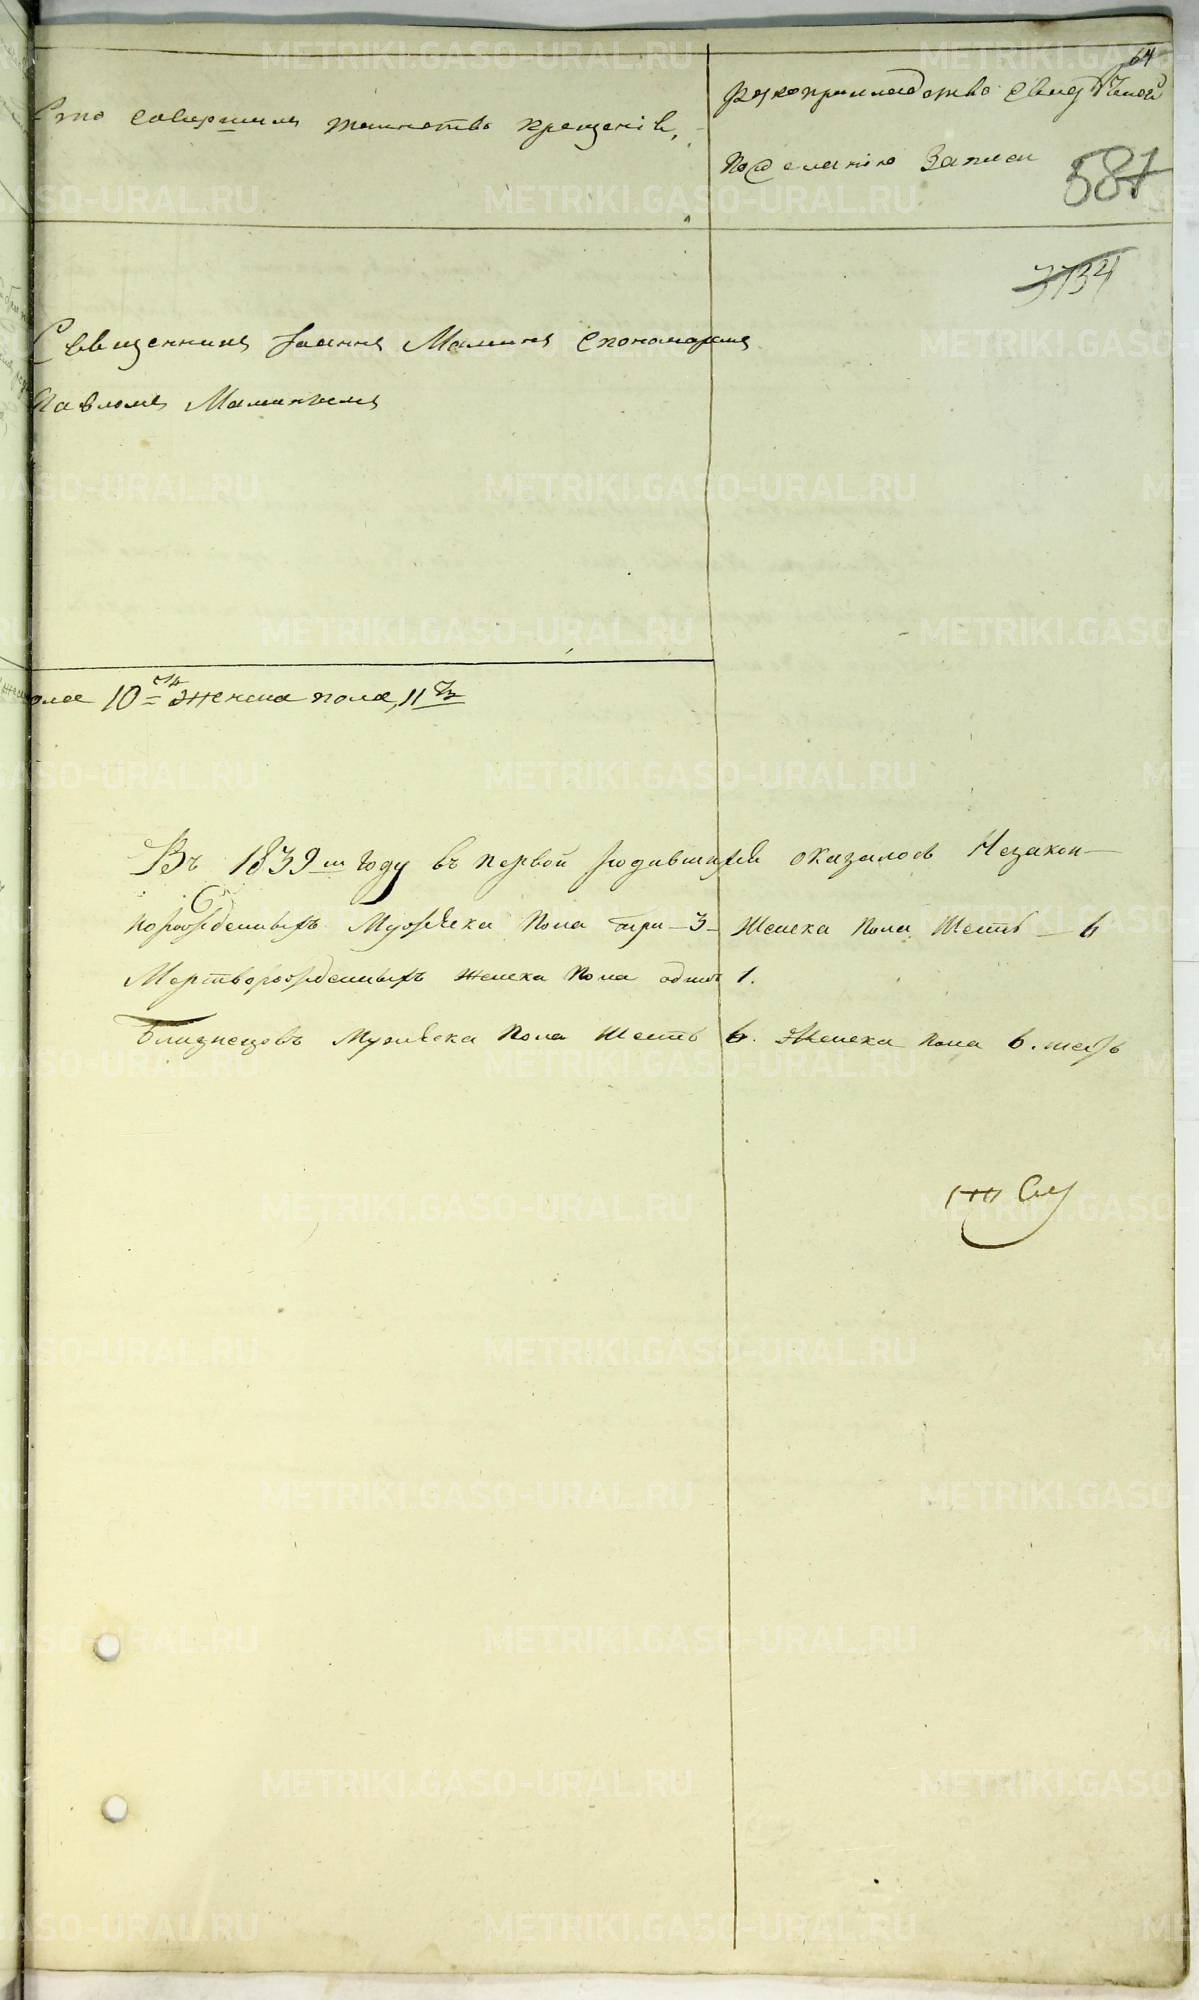 64
Кто совершилъ таинство крещенія,
рукоприкладство свидѣтелей
по желанію записи
587
3734
Священникъ Іоаннъ Маминъ спономаремъ
Павломъ Маминымъ
пола 10ть женска пола, 11ть
Въ 1839мъ году въ первой родившихся оказалось Незакон-
норожденныхъ Мужеска пола три -3- Женска пола Шесть - 6
Мертворожденныхъ женска пола одна 1.
Близнецовъ Мужеска пола Шесть 6. Женска пола 6. шесть
METRIKI.GASO-URAL.RU